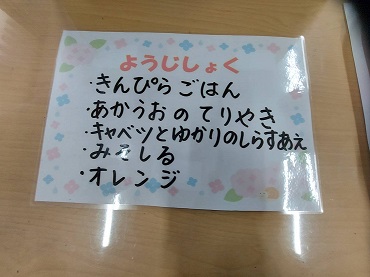 ようじしょく
・きんぴらごはん
・あかうおのてりやき
・キャベツとゆかりのしらすあえ
・みそしる
・オレンジ